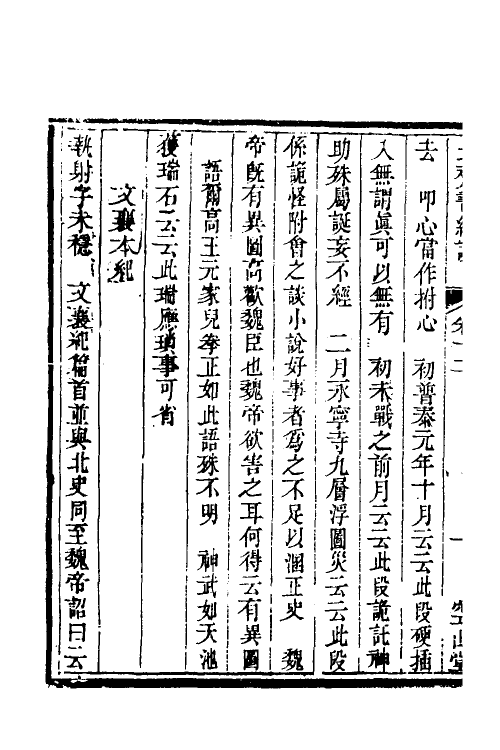 去　叩心當作拊心　初普泰元年十月云云此段硬插
入無謂眞可以無有　初未戰之前月云云此段詭託神
助殊屬誕妄不經　二月永寧寺九層浮圖災云云此段
係詭怪附會之談小說好事者爲之不足以溷正史　魏
帝旣有異圖高歡魏臣也魏帝欲害之耳何得云有異圖
語爾高王元家兒拳正如此語殊不明　神武如天池
獲瑞石云云此瑞應瑣事可省
文襄本紀
執射字未穩　文襄紀篇首並與北史同至魏帝詔曰云
卷十二